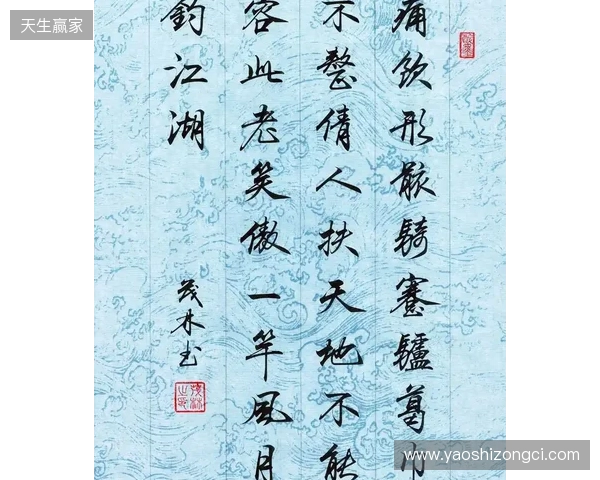 天生赢家
痛饮形骸騎蹇驢葛巾
不整倩人扶天地不能
容此老笑傲一竿風月
釣江湖
茂林书
www.yaoshizongci.com